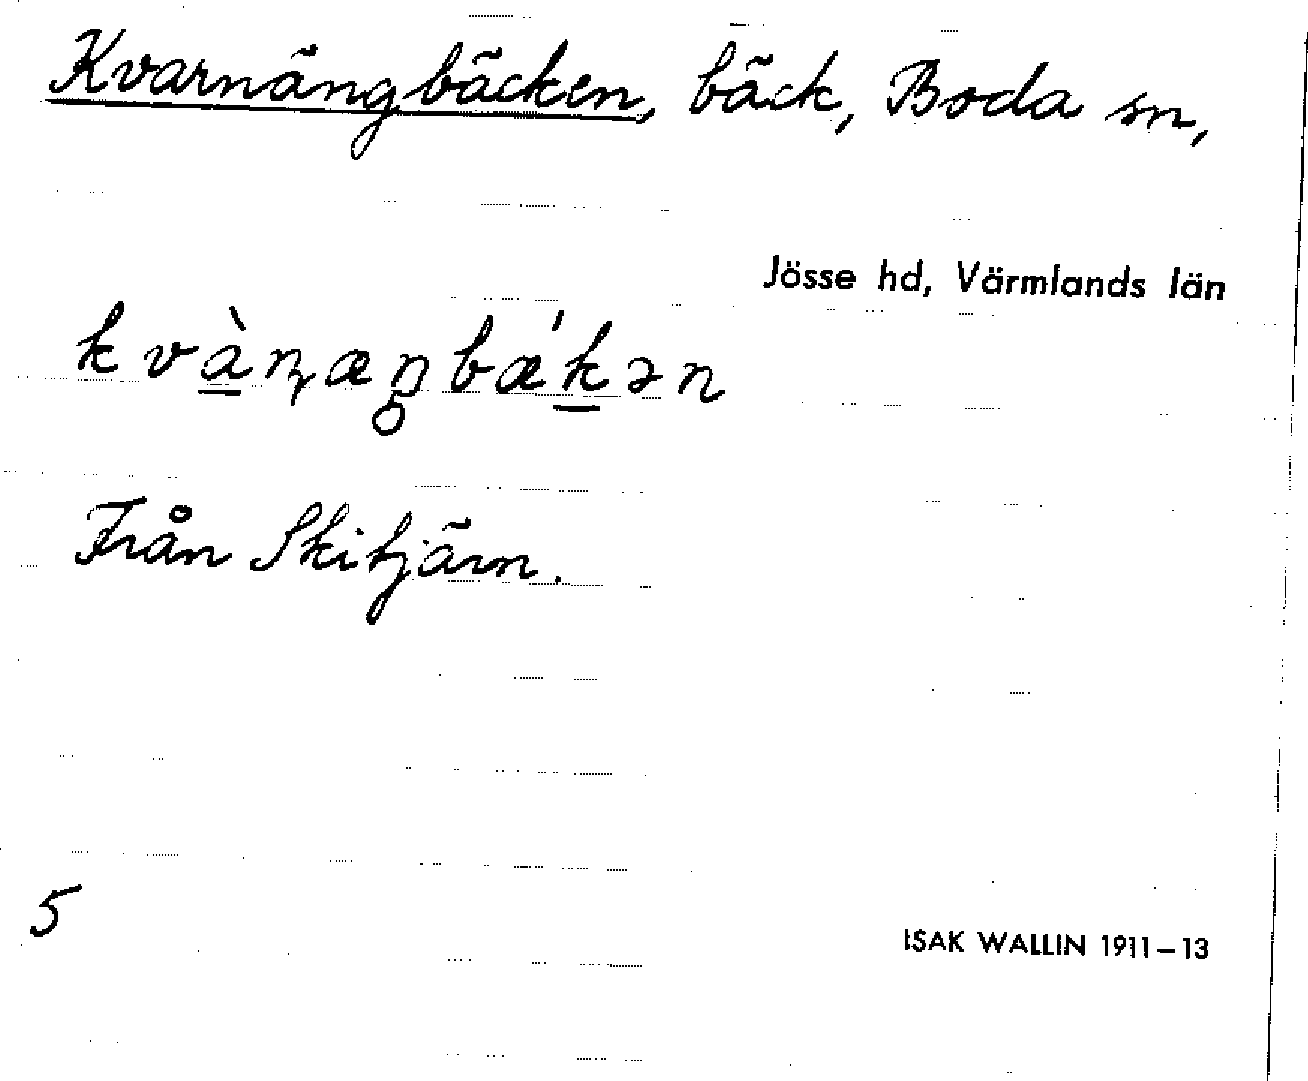 Kvarnängbäcken, bäck, Boda sn,
Jösse hd, Värmlands län
kvàɳæŋbǽkən
Från Skitjärn.
5
ISAK WALLIN 1911–13